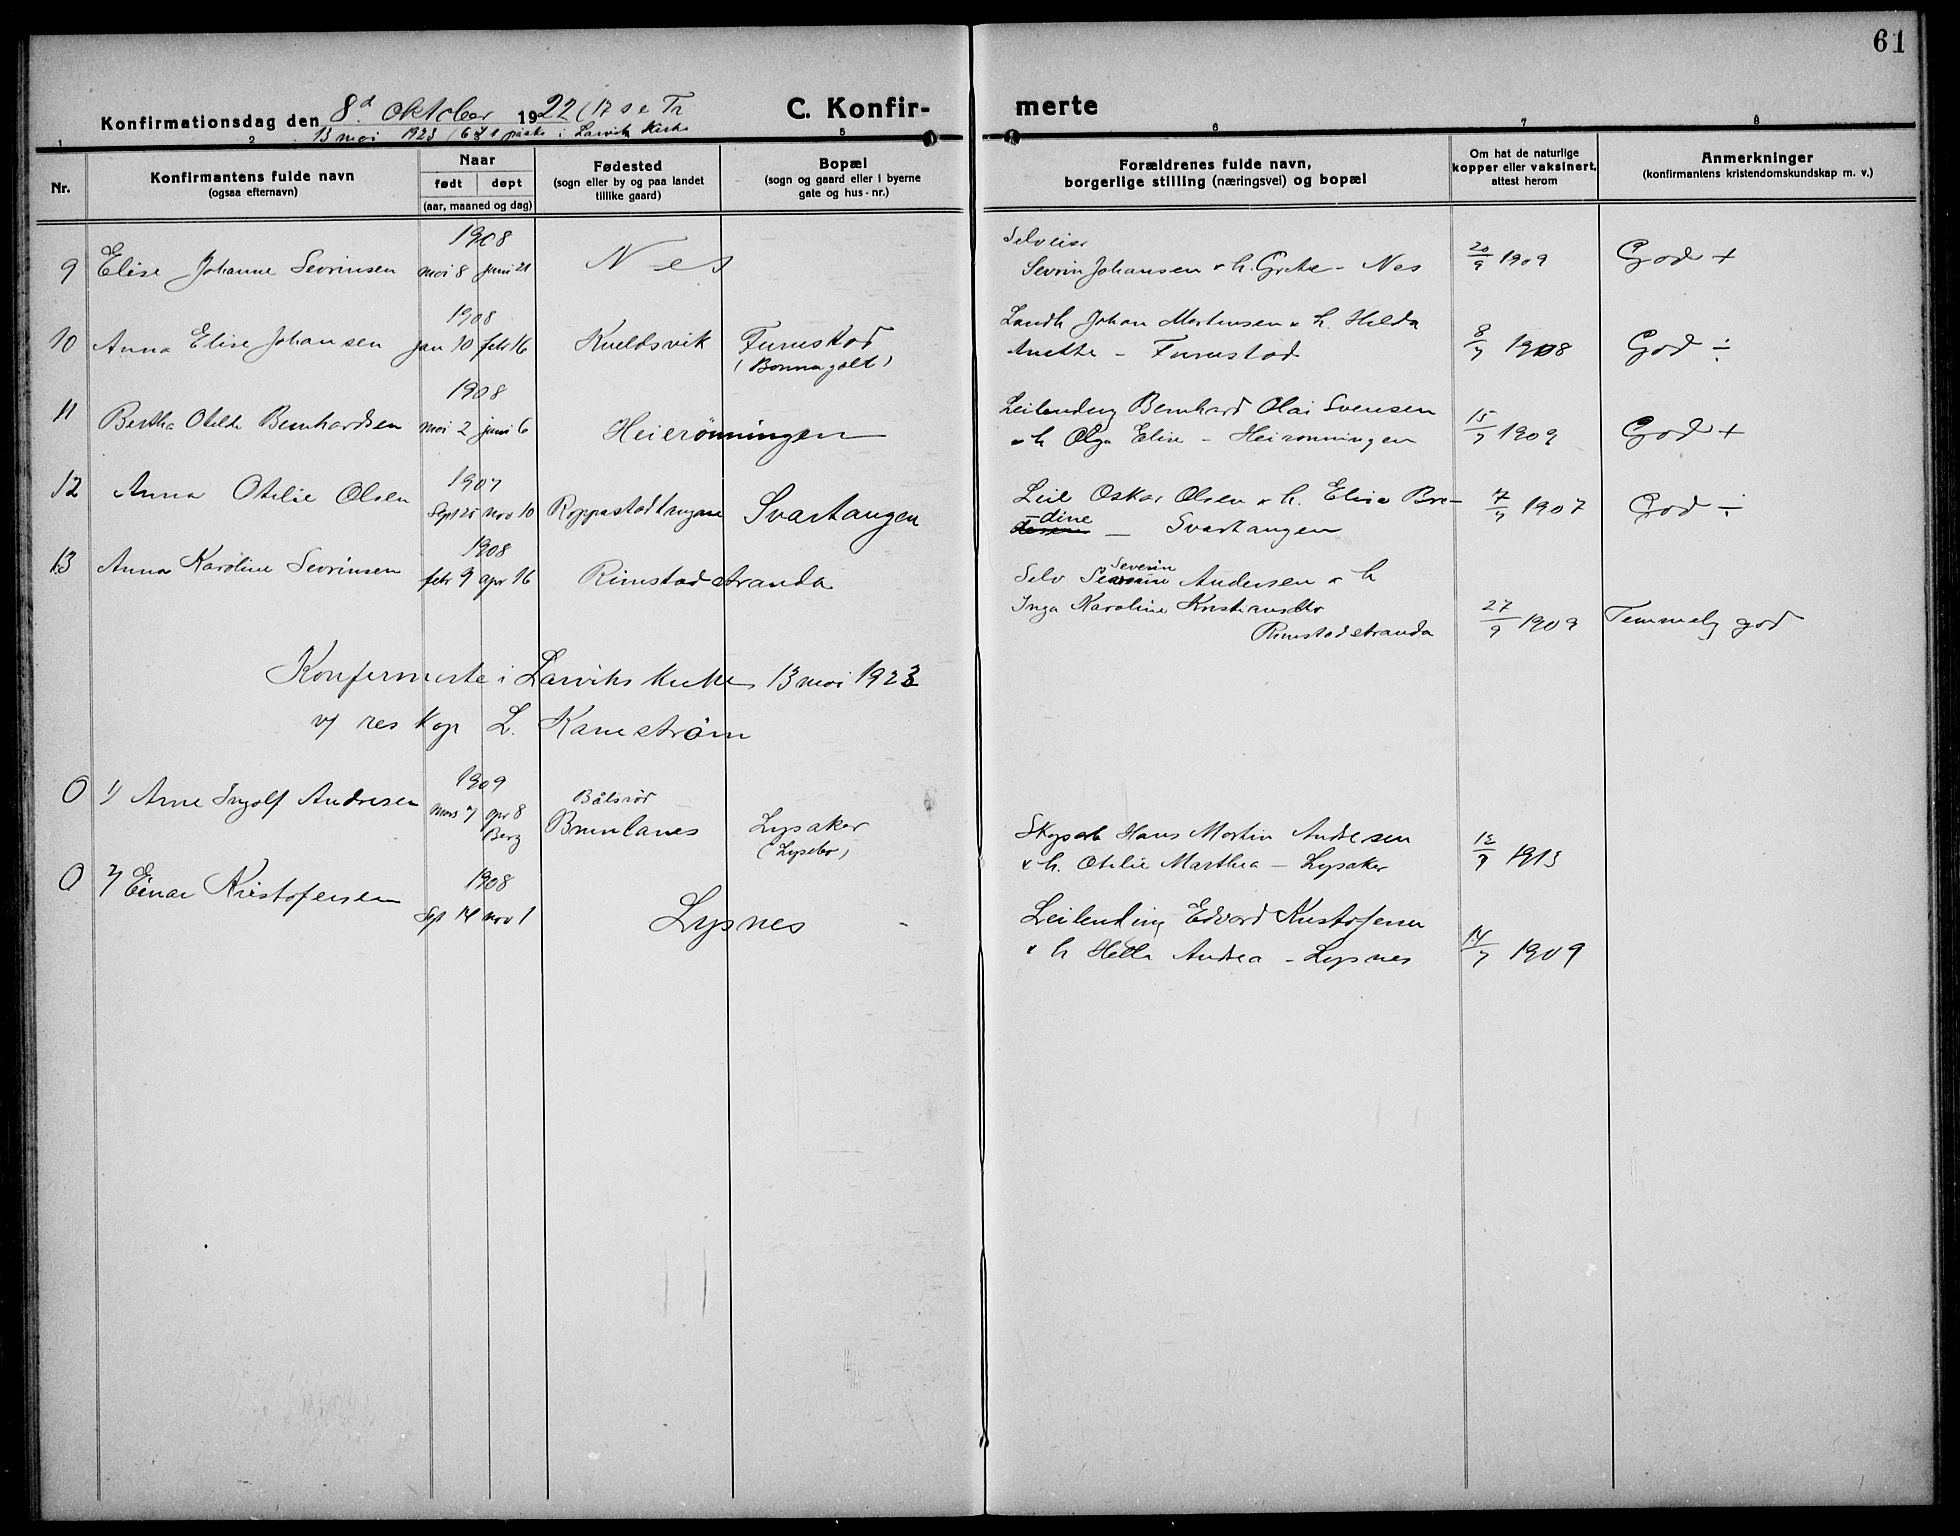 61
Konfirmationsdag den 8d oktober 1922 (17 s e Tr
13 mai 1923 i Larvik Kirke
C. Konfir-
merte
1 2 5 6 7 8
Nr.
Konfirmantens fulde navn
(ogsaa efternavn)
Naar
født døpt
(aar, maaned og dag)
Fødested
(sogn eller by og paa landet
tillike gaard)
Bopæl
(sogn og gaard eller i byerne
gate og hus-nr.)
Forældrenes fulde navn,
borgerlige stilling (næringsvei) og bopæl
Om hat de naturlige
kopper eller vaksinert,
attest herom
Anmerkninger
(konfirmantens kristendomskundskap m. v.)
1908
9 Elise Johanne Sevrinsen mai 8 juni 21 Nes
Selveier
Sevrin Johansen & h. Grete - Nes 20/9 1909 God +
1908
10 Anna Elise Johansen jan 10 febr 16 Kveldsvik Furustad
(Bonnagolt)
Landh Johan Martinsen & h. Hilda
Anette - Furustad 8/7 1908 God ÷
1908
11 Bertha Otilde Bernhardsen mai 2 juni 6 Heierönningen
Leilending Bernhard Olai Svensen
& h Olga Elise - Heirönningen 15/7 1909 God +
1907
12 Anna Otilie Olsen Sept 25 nov 10 Roppestadtangen Svartangen
Leil Oskar Olsen & h. Elise Bre-
-dine - Svartangen 17/7 1907 God ÷
1908
13 Anna Karoline Sevrinsen febr 9 apr 16 Rimstadstranda
Selv Severin Andersen & h
Inga Karoline Kristiansdtr
Rimstadstranda 27/9 1909 Temmelig god
Konfirmerte i Larviks Kirke 13 mai 1923
v/ res kap L. Kamström
1909
0 1) Arne Ingolf Andresen mars 7 apr 8
Berg
Bålsrød
Brunlanes Lysaker
(Lysebo)
Skogsarb Hans Martin Andresen
& h. Otilie Marthea - Lysaker 12/9 1913
1908
0 2) Einar Kristofersen Sept 14 nov 1 Lysnes
Leilending Edvard Kristofersen
& h Hella Andrea - Lysnes 14/7 1909